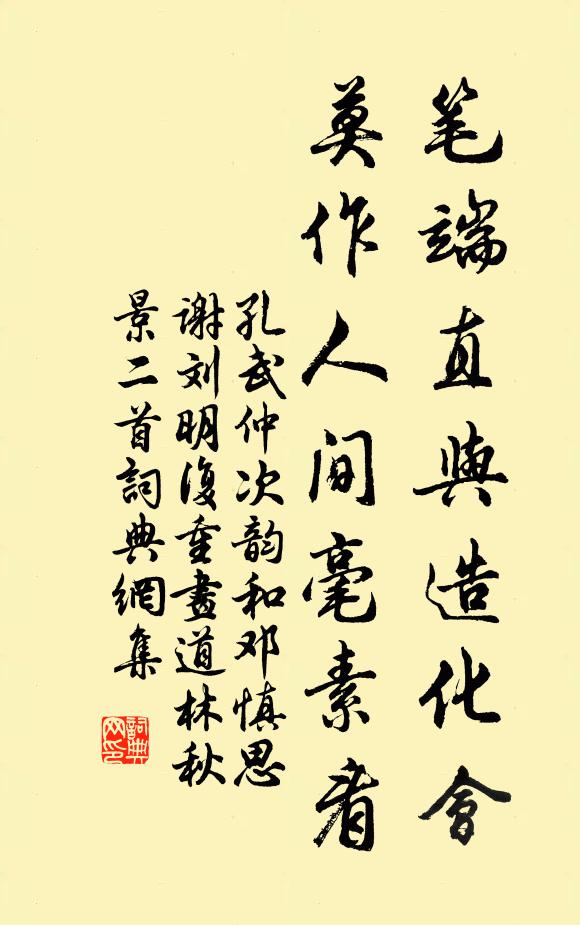 笔端直與造化會
莫作人间毫素看
孔武仲次韵和邓慎思
谢刘明復重畫道林秋
景二首詞典網集
詞典
网印